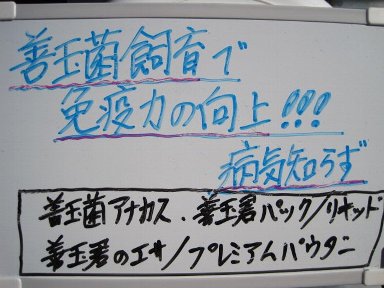 善玉菌飼育で
免疫力の向上!!!
病気知らず
善玉菌アナカス、善玉君パック/リキッド
善玉君のエサ/プレミアムパウダー